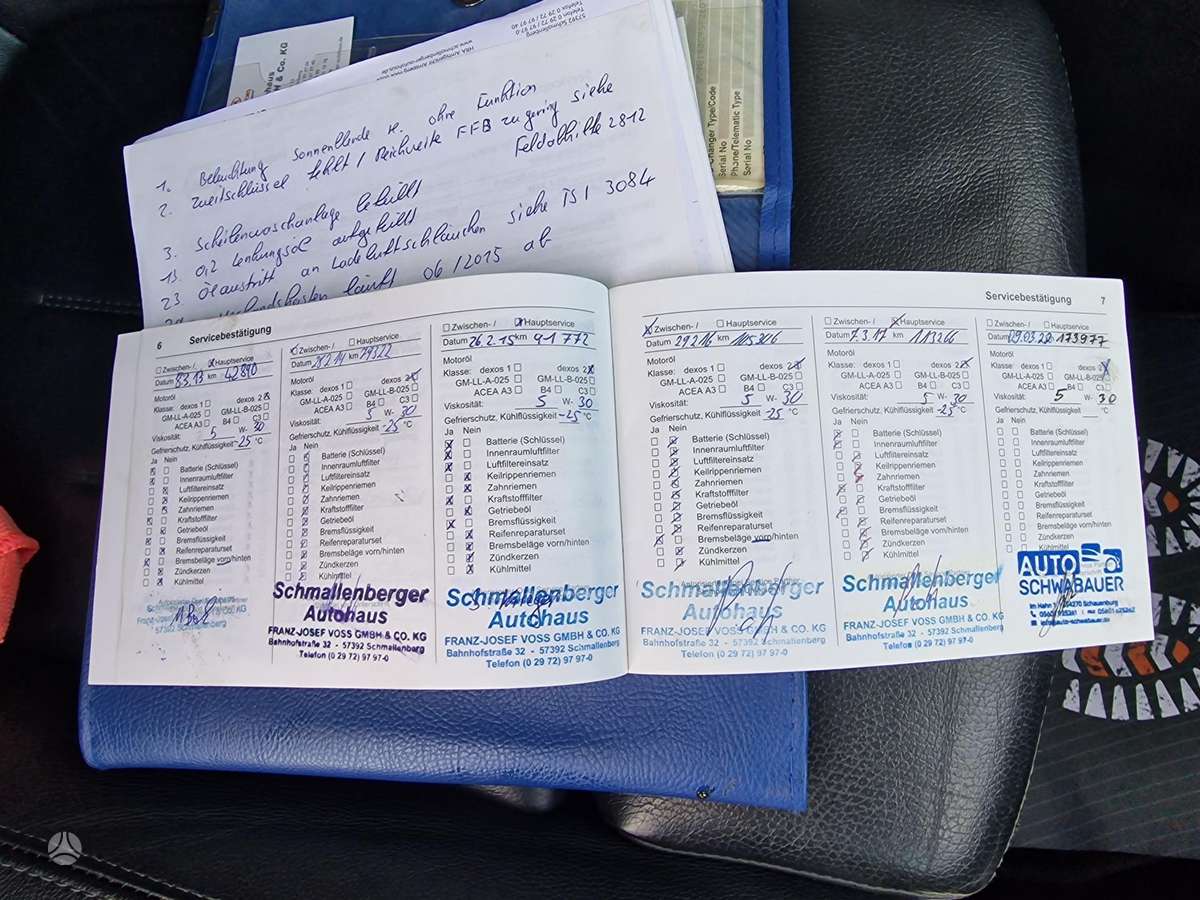 57392 Schmallenberg
Telefon 0 29 72 / 97 97-0
Telefax 0 29 72 / 97 97 40
HRA Amtsgericht Arnsberg
www.schmallenberger-autohaus.de
H & Co. KG
Changer Type/Code
Serial No
Phone/Telematic Type
Serial No
1. Beleuchtung Sonnenblende re. ohne Funktion
2. Zweitschlüssel fehlt / Reichweite FFB zu gering siehe
Feldabhilfe 2812
3. Scheibenwaschanlage befüllt
13. 0,2 Lenkungsöl aufgefüllt
23. Ölaustritt an Ladeluftschläuchen siehe TSI 3084
läuft 06/2015 ab
6 Servicebestätigung
Zwischen- / Hauptservice
Datum 8.3.13 km 42890
Motoröl
Klasse: dexos 1 dexos 2
GM-LL-A-025 GM-LL-B-025
ACEA A3 B4 C3
Viskosität: 5 W- 30
Gefrierschutz, Kühlflüssigkeit -25 °C
Ja Nein
Batterie (Schlüssel)
Innenraumluftfilter
Luftfiltereinsatz
Keilrippenriemen
Zahnriemen
Kraftstofffilter
Getriebeöl
Bremsflüssigkeit
Reifenreparaturset
Bremsbeläge vorn/hinten
Zündkerzen
Kühlmittel
Zwischen- / Hauptservice
Datum km
Motoröl
Klasse: dexos 1 dexos 2
GM-LL-A-025 GM-LL-B-025
ACEA A3 B4 C3
Viskosität: 5 W- 30
Gefrierschutz, Kühlflüssigkeit -25 °C
Ja Nein
Batterie (Schlüssel)
Innenraumluftfilter
Luftfiltereinsatz
Keilrippenriemen
Zahnriemen
Kraftstofffilter
Getriebeöl
Bremsflüssigkeit
Reifenreparaturset
Bremsbeläge vorn/hinten
Zündkerzen
Kühlmittel
Schmallenberger
Autohaus
FRANZ-JOSEF VOSS GMBH & CO. KG
Bahnhofstraße 32 - 57392 Schmallenberg
Telefon (0 29 72) 97 97-0
Zwischen- / Hauptservice
Datum 26.2.15 km 91 772
Motoröl
Klasse: dexos 1 dexos 2
GM-LL-A-025 GM-LL-B-025
ACEA A3 B4 C3
Viskosität: 5 W- 30
Gefrierschutz, Kühlflüssigkeit -25 °C
Ja Nein
Batterie (Schlüssel)
Innenraumluftfilter
Luftfiltereinsatz
Keilrippenriemen
Zahnriemen
Kraftstofffilter
Getriebeöl
Bremsflüssigkeit
Reifenreparaturset
Bremsbeläge vorn/hinten
Zündkerzen
Kühlmittel
Schmallenberger
Autohaus
FRANZ-JOSEF VOSS GMBH & CO. KG
Bahnhofstraße 32 - 57392 Schmallenberg
Telefon (0 29 72) 97 97-0
Servicebestätigung 7
Zwischen- / Hauptservice
Datum 29.2.16 km
Motoröl
Klasse: dexos 1 dexos 2
GM-LL-A-025 GM-LL-B-025
ACEA A3 B4 C3
Viskosität: 5 W- 30
Gefrierschutz, Kühlflüssigkeit -25 °C
Ja Nein
Batterie (Schlüssel)
Innenraumluftfilter
Luftfiltereinsatz
Keilrippenriemen
Zahnriemen
Kraftstofffilter
Getriebeöl
Bremsflüssigkeit
Reifenreparaturset
Bremsbeläge vorn/hinten
Zündkerzen
Kühlmittel
Schmallenberger
Autohaus
FRANZ-JOSEF VOSS GMBH & CO. KG
Bahnhofstraße 32 - 57392 Schmallenberg
Telefon (0 29 72) 97 97-0
Zwischen- / Hauptservice
Datum 7.3.17 km 113266
Motoröl
Klasse: dexos 1 dexos 2
GM-LL-A-025 GM-LL-B-025
ACEA A3 B4 C3
Viskosität: 5 W- 30
Gefrierschutz, Kühlflüssigkeit -25 °C
Ja Nein
Batterie (Schlüssel)
Innenraumluftfilter
Luftfiltereinsatz
Keilrippenriemen
Zahnriemen
Kraftstofffilter
Getriebeöl
Bremsflüssigkeit
Reifenreparaturset
Bremsbeläge vorn/hinten
Zündkerzen
Kühlmittel
Schmallenberger
Autohaus
FRANZ-JOSEF VOSS GMBH & CO. KG
Bahnhofstraße 32 - 57392 Schmallenberg
Telefon (0 29 72) 97 97-0
Zwischen- / Hauptservice
Datum 09.03.20 km 173977
Motoröl
Klasse: dexos 1 dexos 2
GM-LL-A-025 GM-LL-B-025
ACEA A3 B4 C3
Viskosität: 5 W- 30
Gefrierschutz, Kühlflüssigkeit °C
Ja Nein
Batterie (Schlüssel)
Innenraumluftfilter
Luftfiltereinsatz
Keilrippenriemen
Zahnriemen
Kraftstofffilter
Getriebeöl
Bremsflüssigkeit
Reifenreparaturset
Bremsbeläge vorn/hinten
Zündkerzen
Kühlmittel
AUTO
SCHWABAUER
Im Hahn 34270 Schauenburg